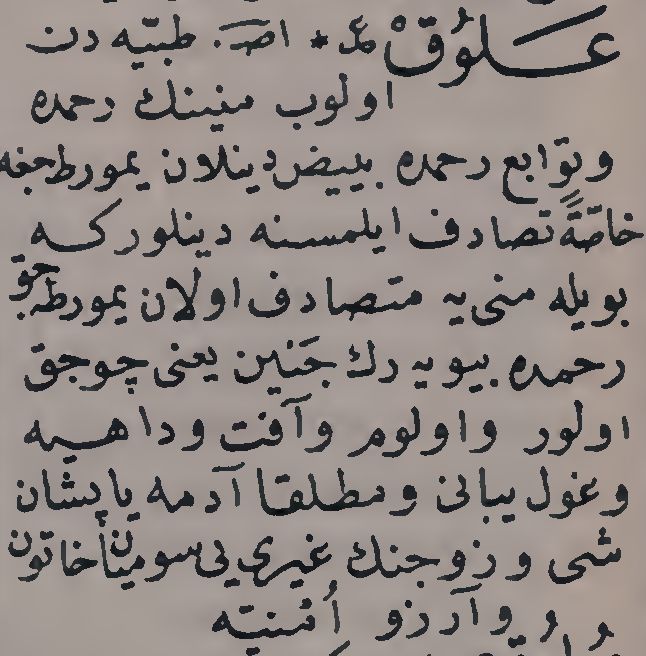 عَلُوقْ عل * اصـ. طبيّه دن
اولوب منينك رحمده
وتوابع رحمده بييض دينلان يمورطه جغه
خاصّةً تصادف ايلمسنه دينلور كه
بويله منى يه متصادف اولان يمورطه جق
رحمده بيويه رك جَنين يعنى چوجق
اولور واولوم وآفت وداهيه
وغول يبانى ومطلقا آدمه ياپشان
شى وزوجنك غيرى يى سوميان خاتون
وآرزو اُمنيته